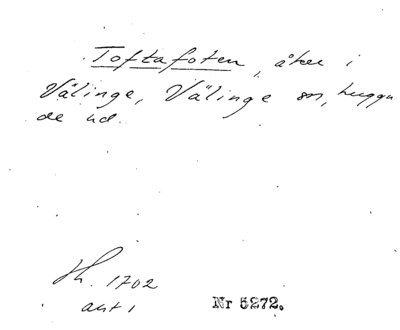 Toftafoten, åker i
Välinge, Välinge sn, huggu
de ud.
Hh. 1702
akt 1
Nr 5272.